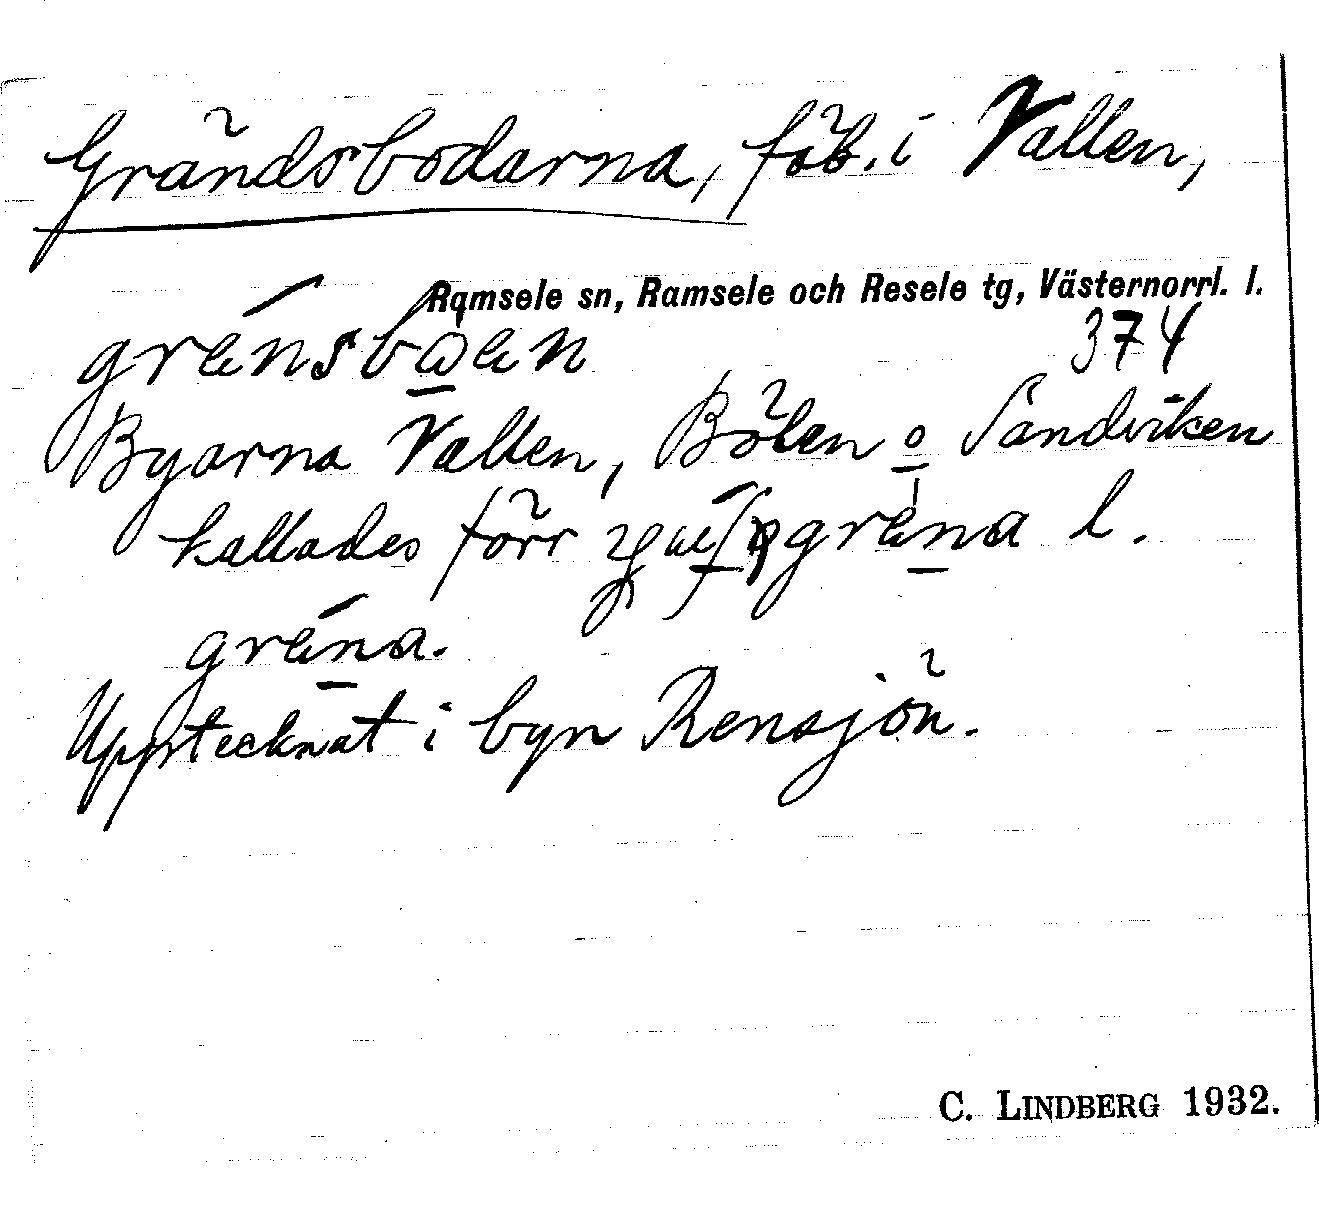 Grändsbodarna, fäb. i Vallen,
Ramsele sn, Ramsele och Resele tg, Västernorrl. l.
374
Byarna Vallen, Bölen o Sandviken
kallades förr gräna l.
gräna.
Upptecknat i byn Rensjön.
C. LINDBERG 1932.